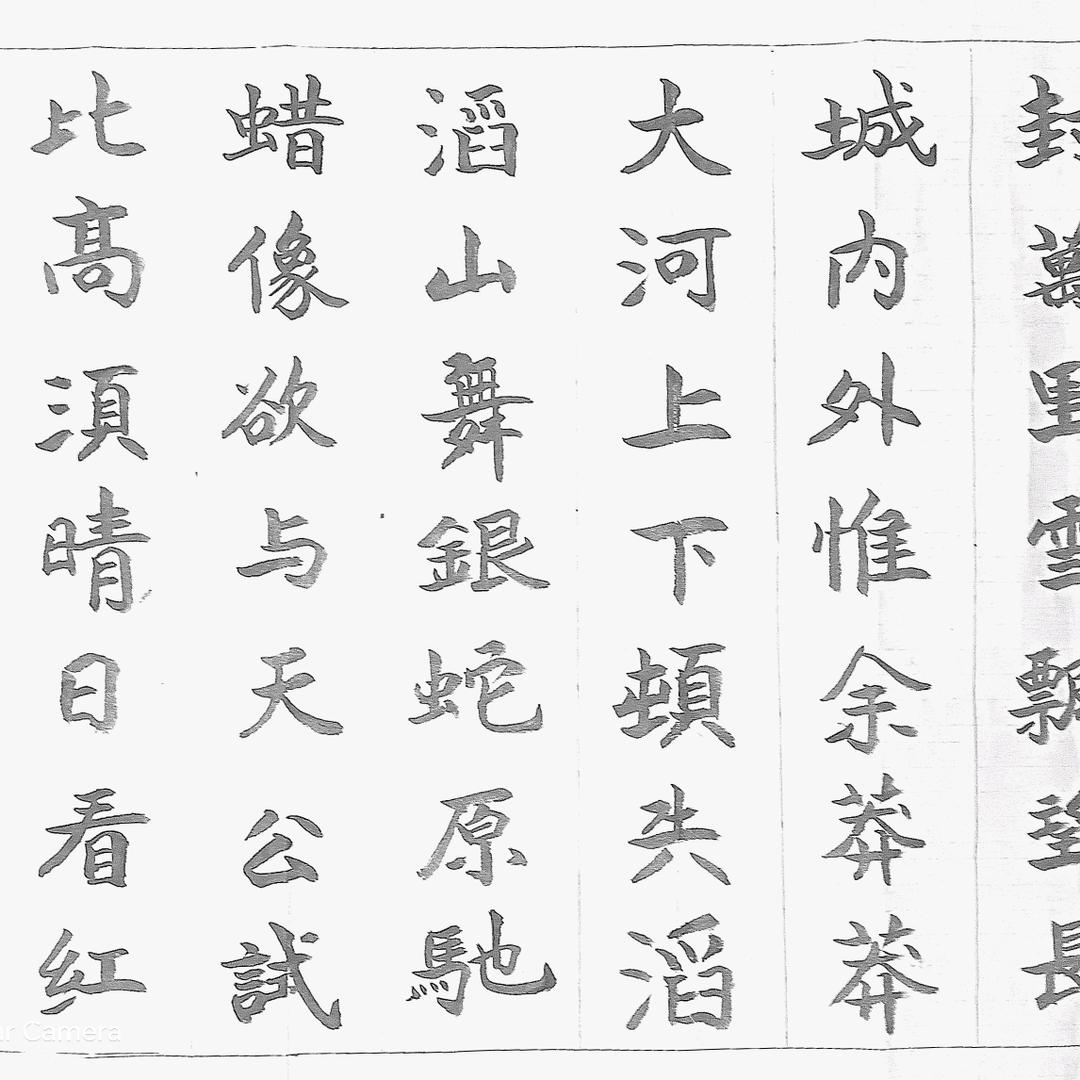 封萬里雪飄望長
城内外惟余莽莽
大河上下頓失滔
滔山舞銀蛇原馳
蜡像欲与天公試
比髙湏晴日看红
Camera